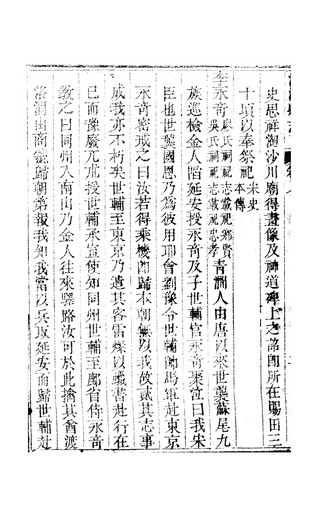 史思祥淘沙川廟得畫像及神道碑上之詔卽所在賜田三
十頃以奉祭祀宋史本傳
李永奇廖氏祠祀志載祀鄉賢吳氏祠祀志載祀忠孝靑澗人由唐以來世襲蘇尾九
族巡檢金人陷延安授永奇及子世輔官永奇泣曰我宋
臣也世襲國恩乃爲彼用耶會劉豫令世輔帥馬軍赴東京
永奇密戒之曰汝若得乘機卽歸本朝無以我故貳其志事
成我亦不朽矣世輔至東京乃遣其客雷燦以蠟書赴行在
已而豫廢兀朮授世輔承宣使知同州世輔至鄜省侍永奇
敎之曰同州入南山乃金人往來驛路汝可於此擒其酋渡
洛渭由商虢歸朝第報我知我當以兵取延安而歸世輔赴